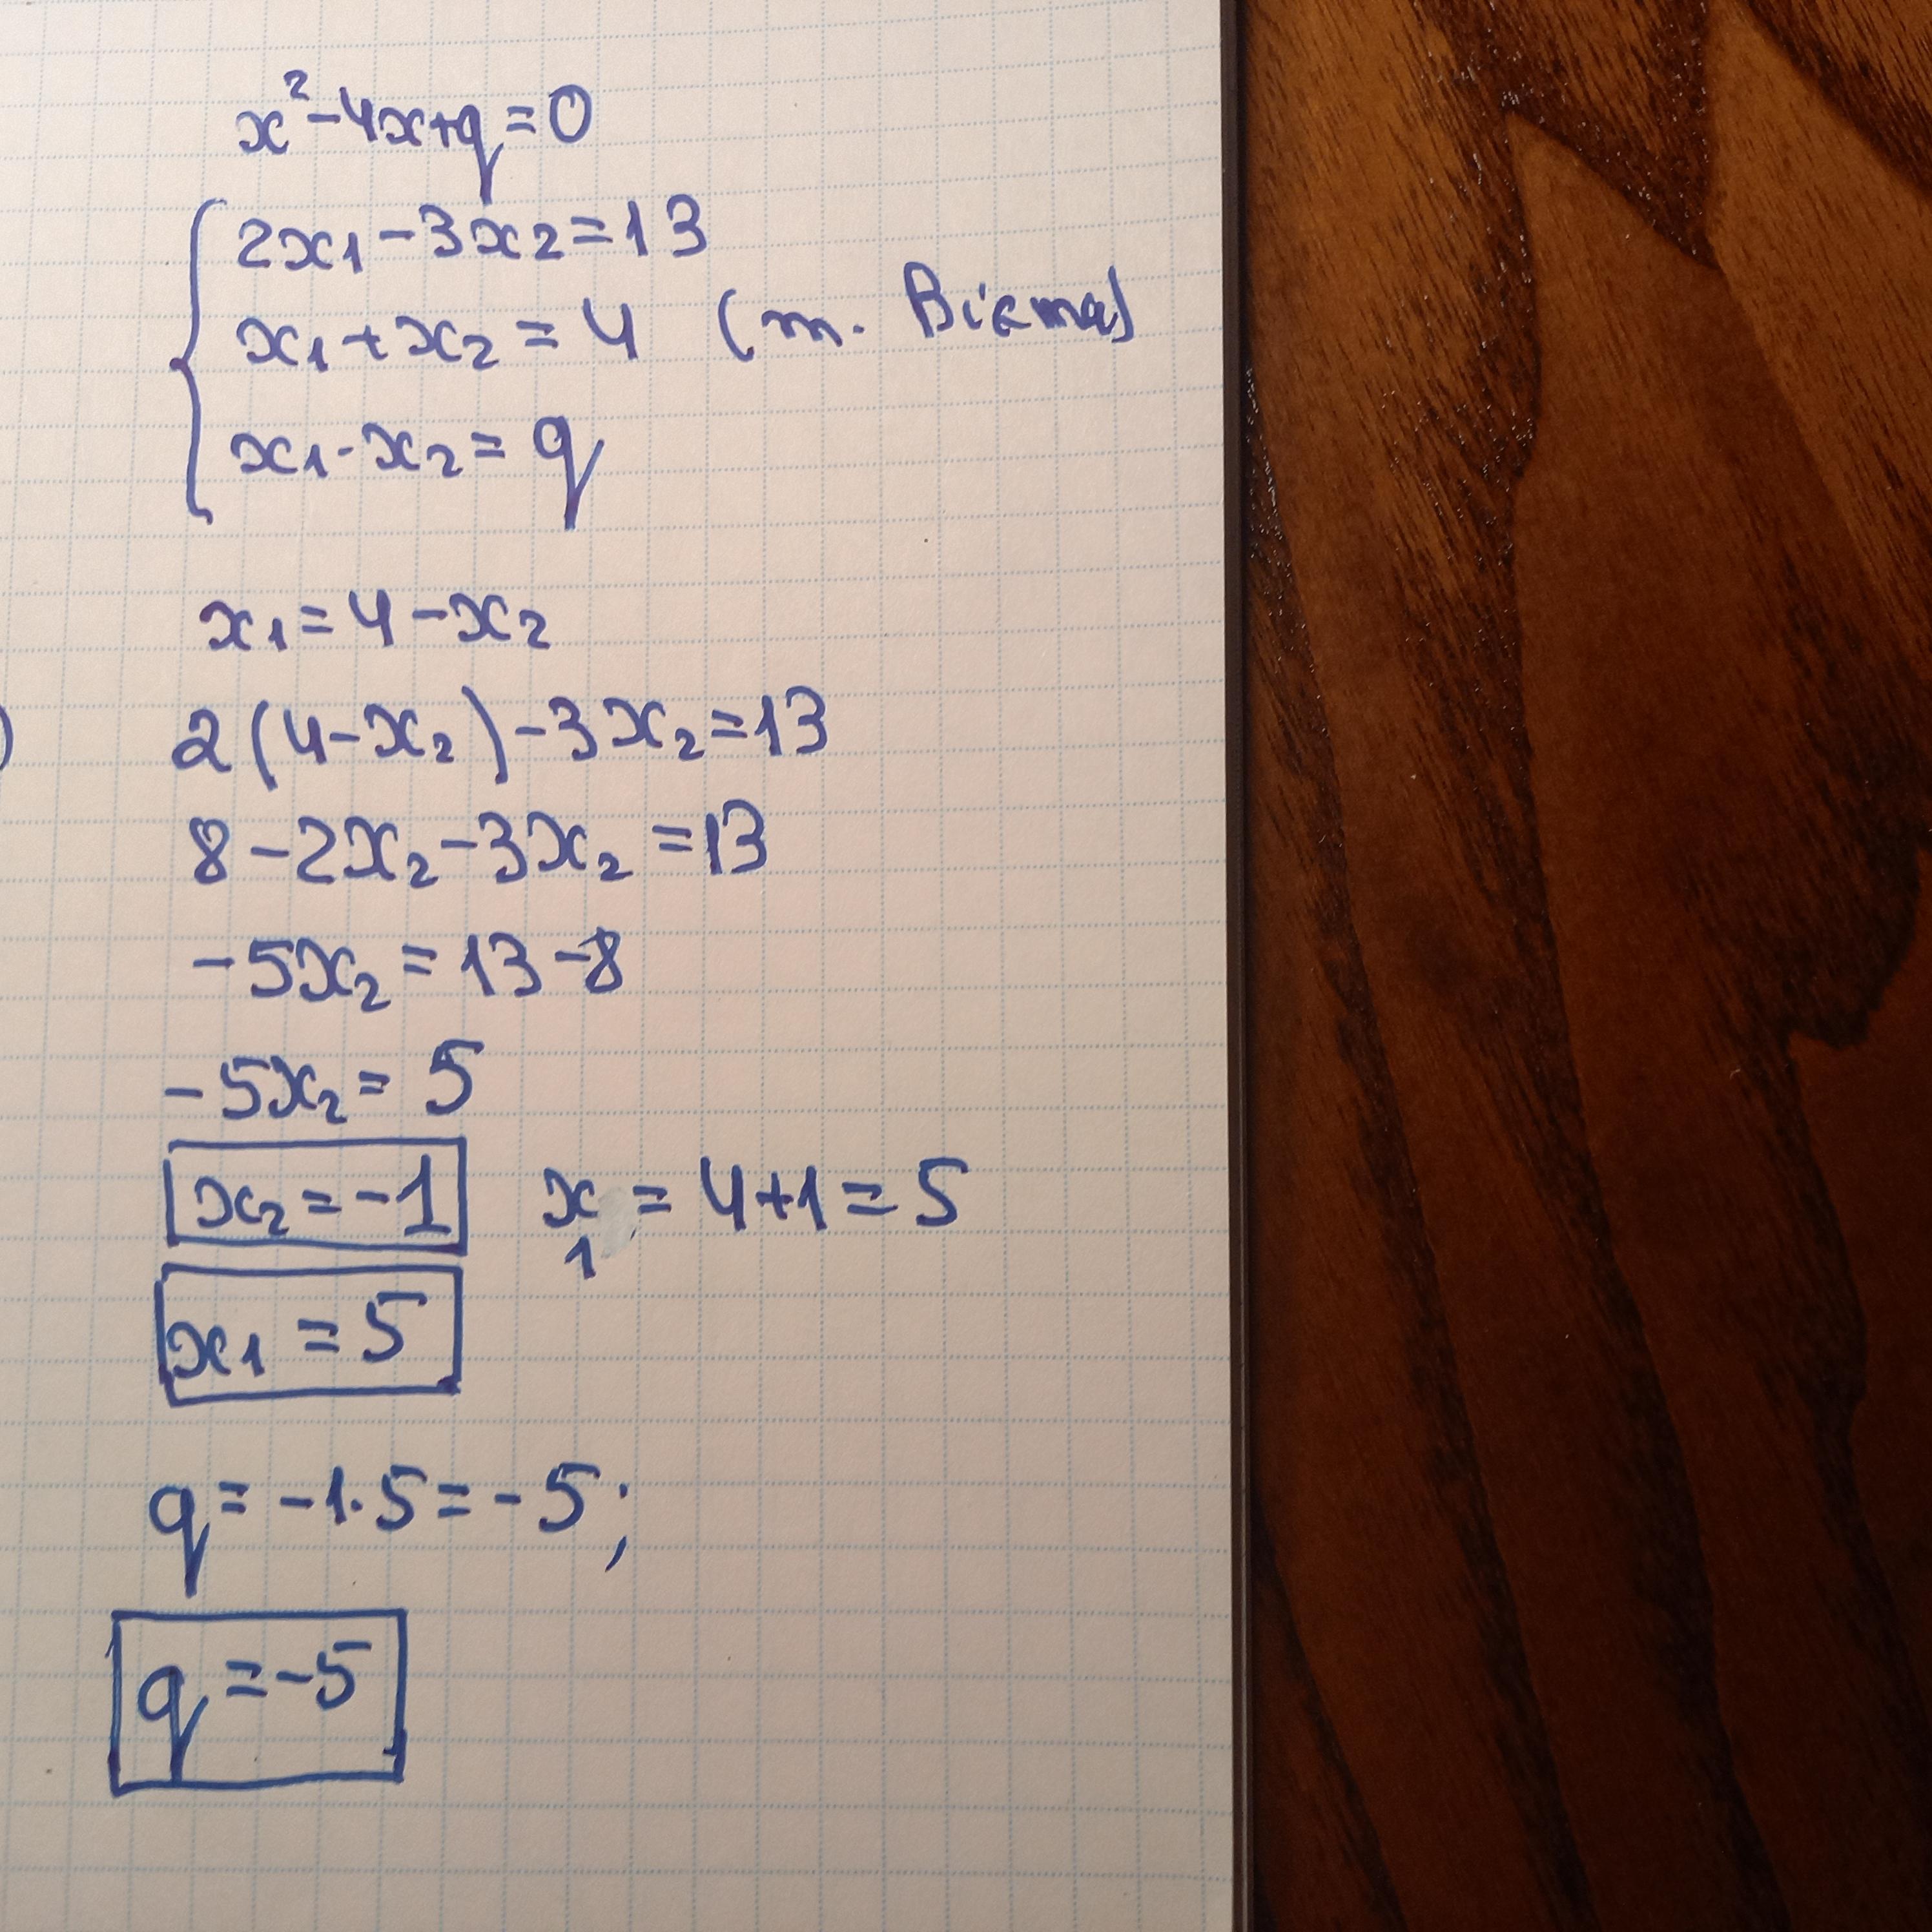 x²-4x+q=0
2x₁-3x₂=13
x₁+x₂=4 (т. Вієта)
x₁·x₂=q
x₁=4-x₂
2(4-x₂)-3x₂=13
8-2x₂-3x₂=13
-5x₂=13-8
-5x₂=5
x₂=-1 x₁=4+1=5
x₁=5
q=-1·5=-5;
q=-5